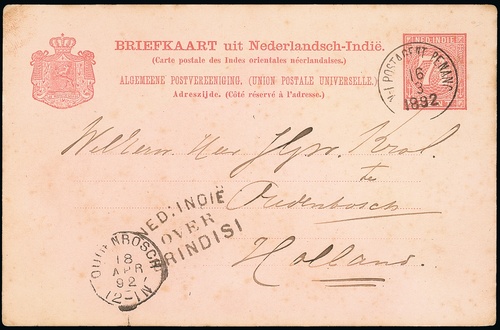 BRIEFKAART uit Nederlandsch-Indië.
(Carte postale des Indes orientales néerlandaises.)
ALGEMEENE POSTVEREENIGING. (UNION POSTALE UNIVERSELLE.)
Adreszijde. (Côté réservé à l'adresse.)
NED-INDIE
7½
N-I POSTAGENT PENANG
16
3
1892
Krol.
te
Oudenbosch
Holland.
NED: INDIË
OVER
BRINDISI
OUDENBOSCH
18
APR
92
12-1N